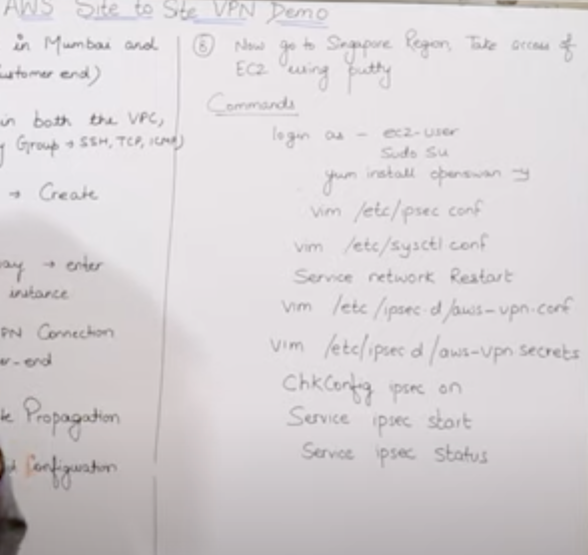 AWS Site to Site VPN Demo
in Mumbai and
ustomer end)
in both the VPC,
Group → SSH, TCP, ICMP)
→ Create
ay → enter
instance
PN Connection
er-end
te Propagation
d Configuration
⑧ Now go to Singapore Region, Take access of
EC2 using putty
Commands
login as - ec2-user
Sudo su
yum install openswan -y
vim /etc/ipsec conf
vim /etc/sysctl conf
Service network Restart
vim /etc/ipsec.d/aws-vpn.conf
vim /etc/ipsec d/aws-vpn secrets
Chkconfig ipsec on
Service ipsec start
Service ipsec status